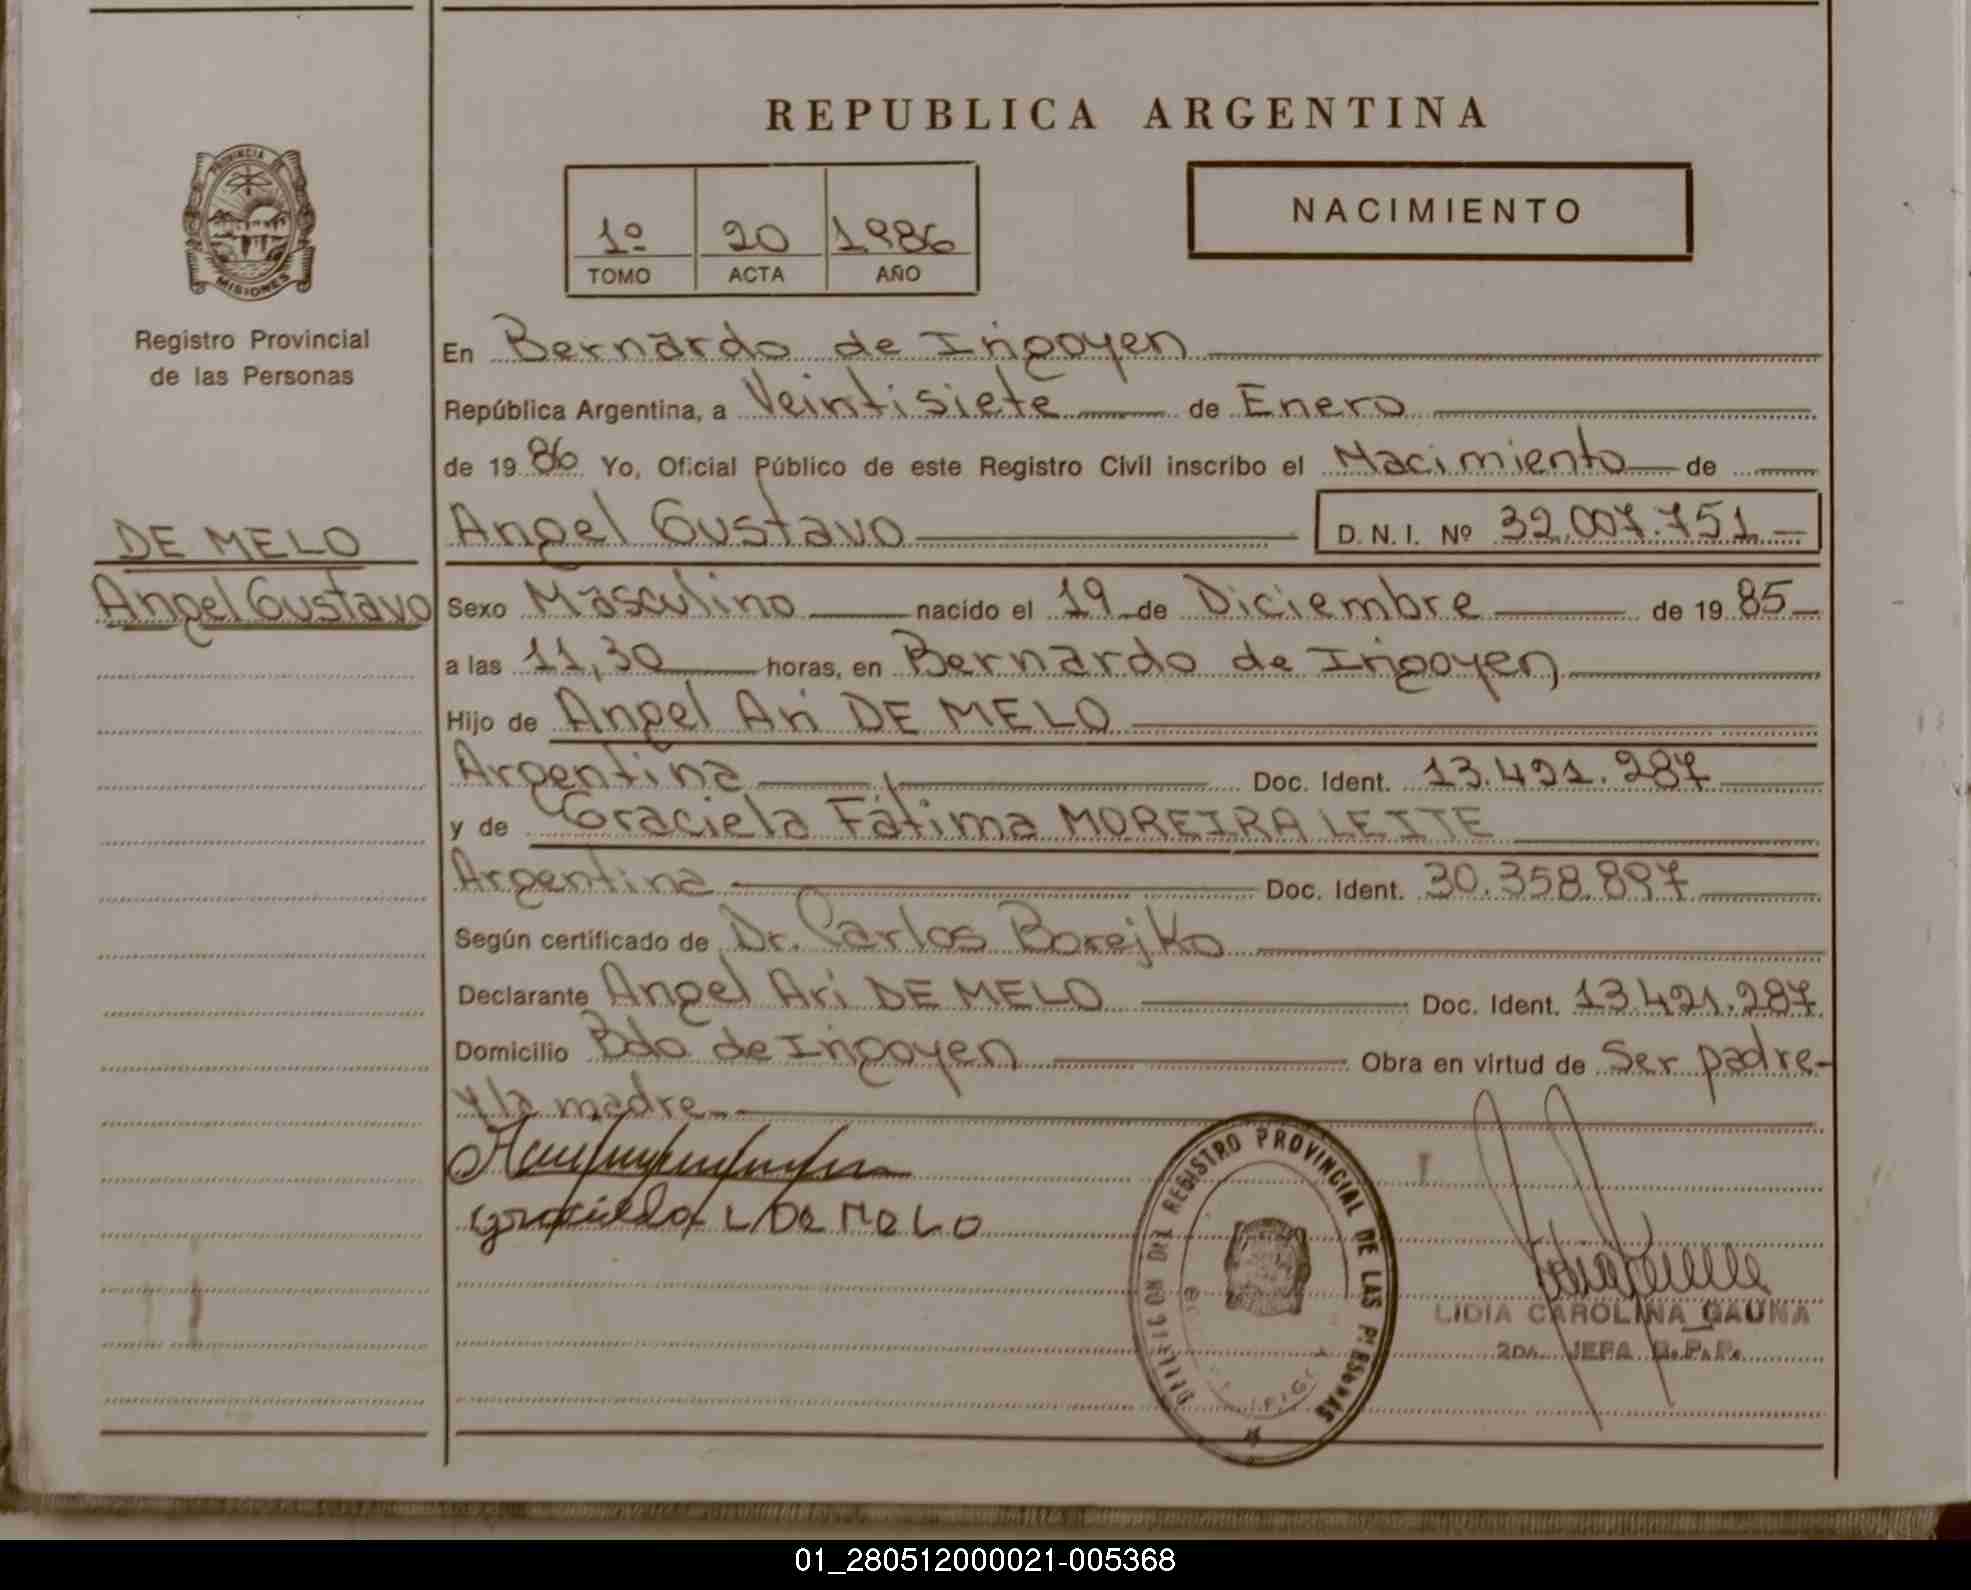 REPUBLICA ARGENTINA
PROVINCIA
MISIONES
Registro Provincial
de las Personas
1º 20 1986
TOMO ACTA AÑO
NACIMIENTO
En Bernardo de Irigoyen
República Argentina, a Veintisiete de Enero
de 1986 Yo, Oficial Público de este Registro Civil inscribo el Nacimiento de
DE MELO
Angel Gustavo
Angel Gustavo D. N. I. Nº 32.007.751
Sexo Masculino nacido el 19 de Diciembre de 1985
a las 11,30 horas, en Bernardo de Irigoyen
Hijo de Angel Ari DE MELO
Argentina Doc. Ident. 13.491.287
y de Graciela Fátima MOREIRA LEITE
Argentina Doc. Ident. 30.358.897
Según certificado de Dr. Carlos Borejko
Declarante Angel Ari DE MELO Doc. Ident. 13.491.287
Domicilio Bdo de Irigoyen Obra en virtud de Ser padre
y la madre
Graciela L DE MELO
REGISTRO PROVINCIAL DE LAS PERSONAS
LIDIA CAROLINA GAUNA
2DA. JEFA R.P.P.
01_280512000021-005368